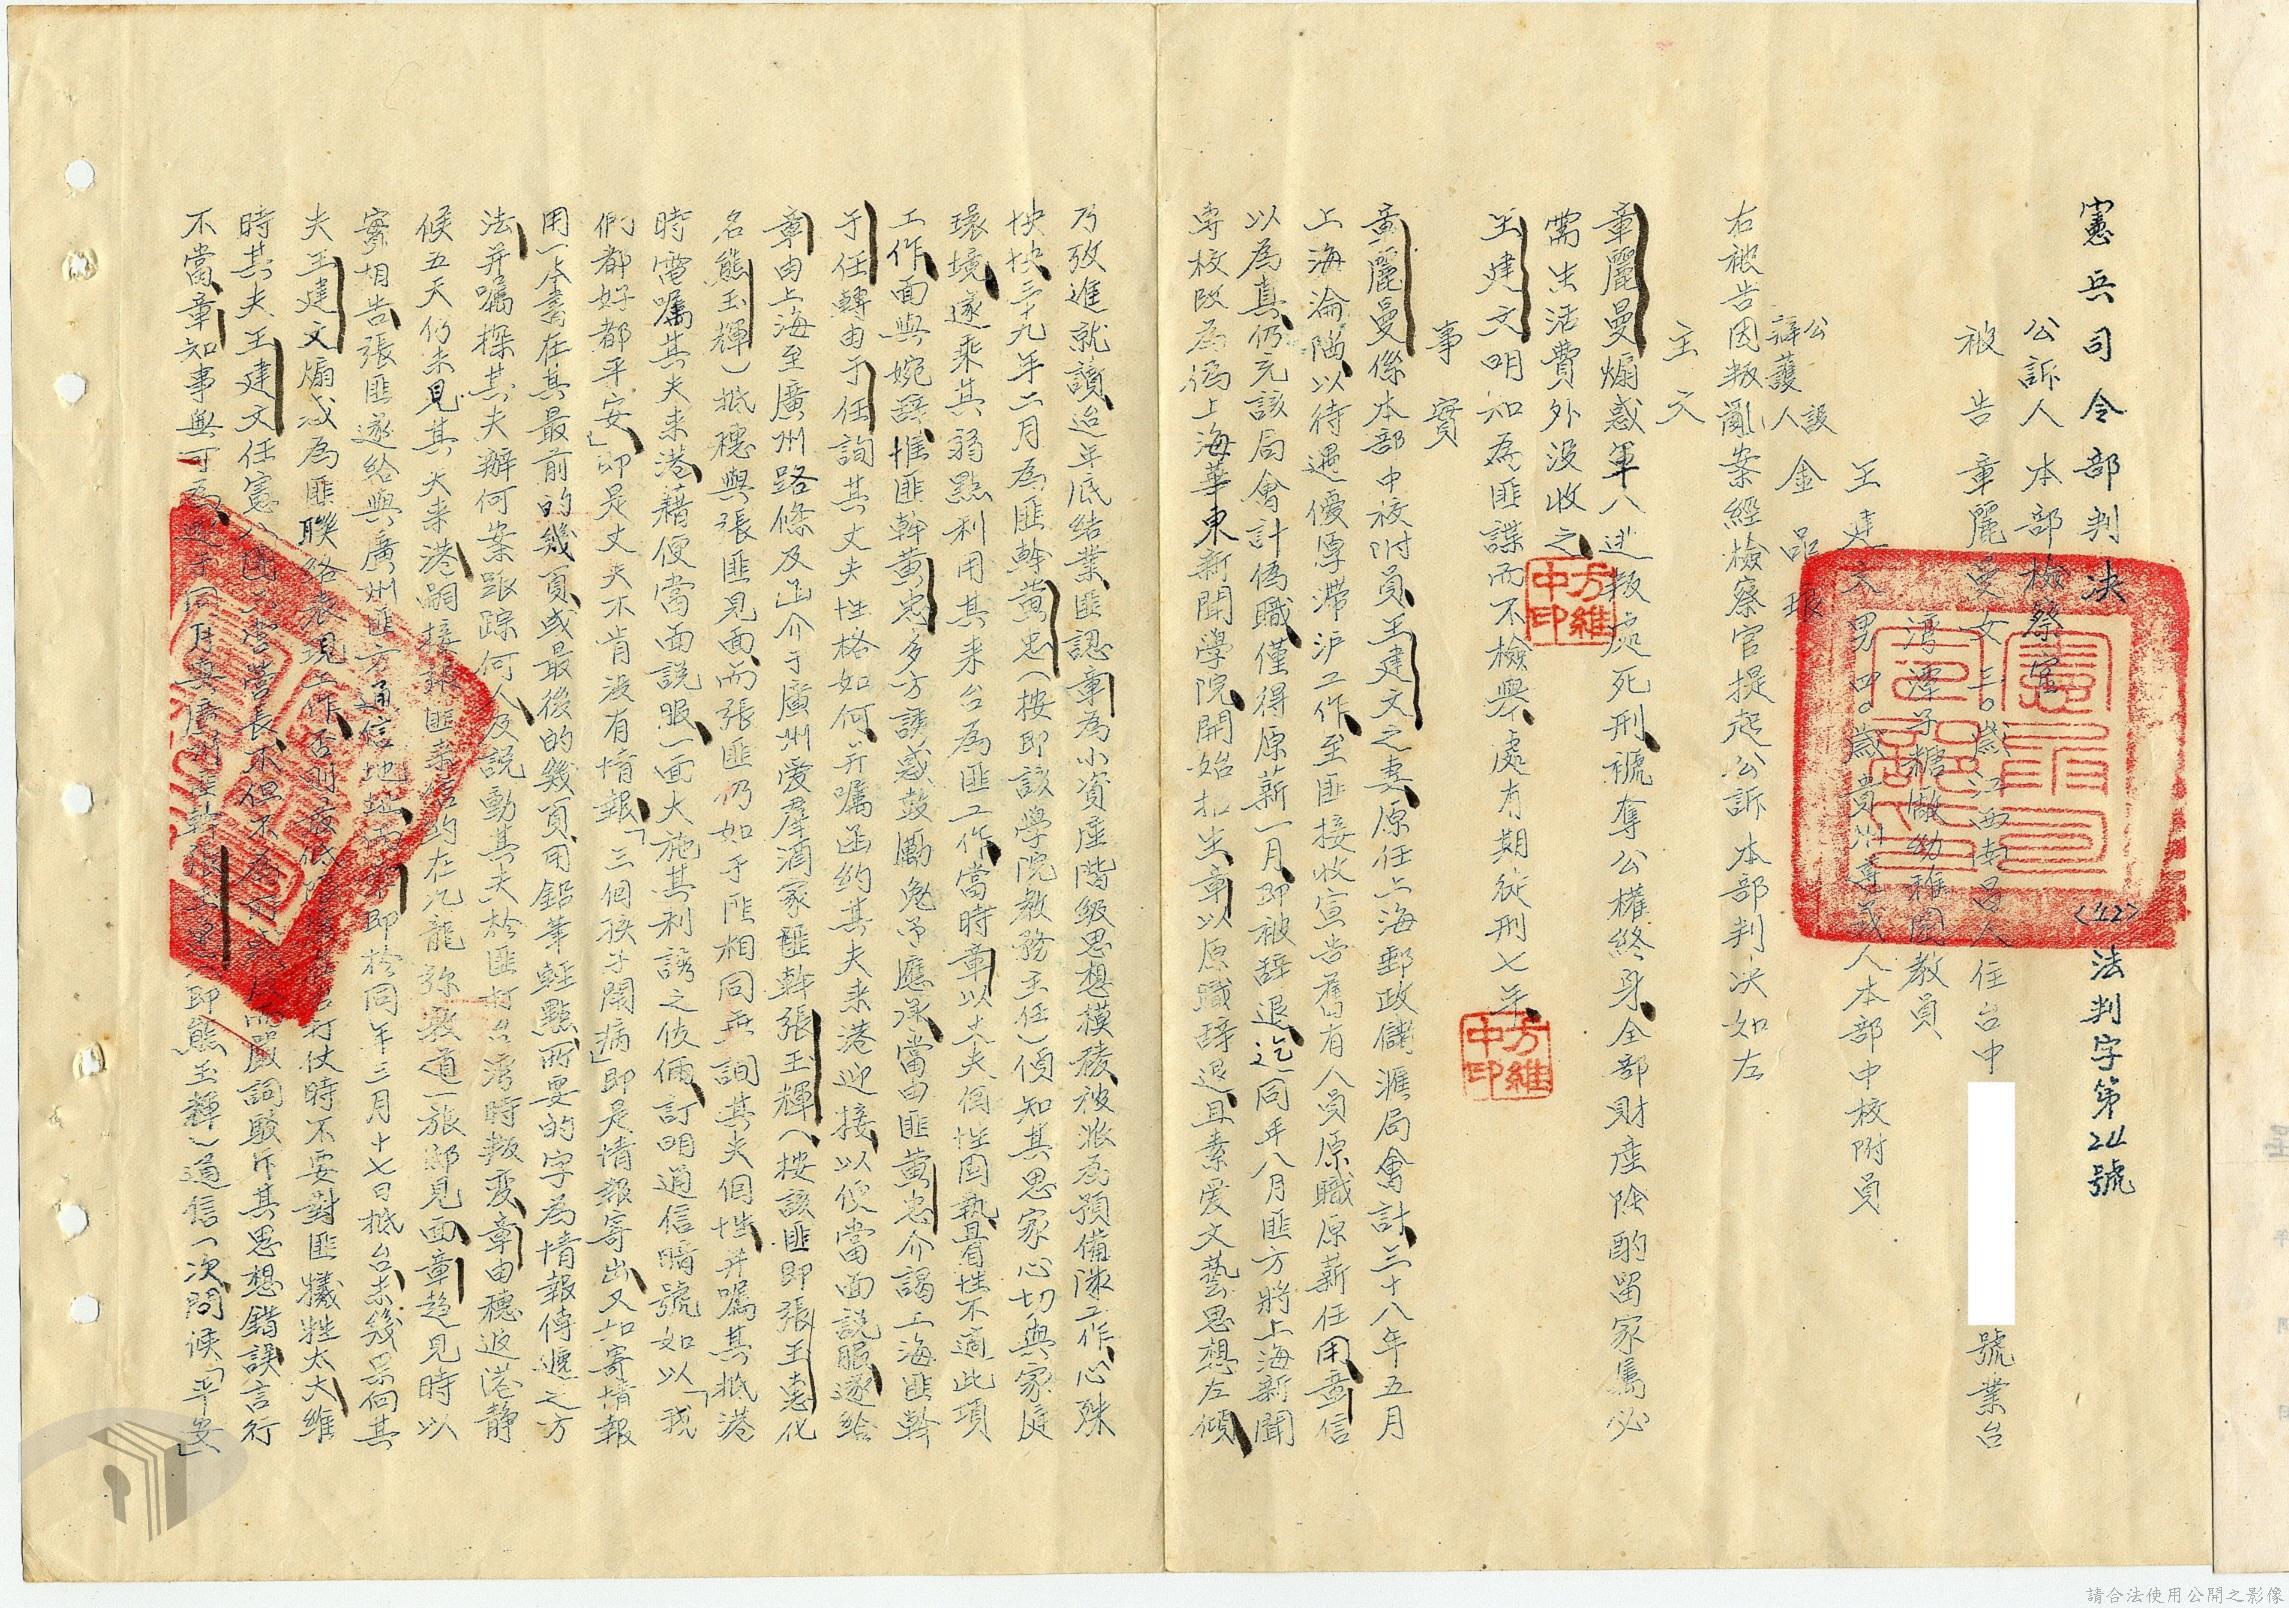 憲兵司令部判決
(42)法判字第24號
公訴人 本部檢察官
被告 章麗曼女三〇歲江西南昌人住台中
號業台
灣潭子糖廠幼稚園教員
王建文男四〇歲貴州遵義人本部中校附員
公設
辯護人 金品琅
右被告因叛亂案經檢察官提起公訴本部判決如左
主文
章麗曼煽惑軍人逃叛處死刑褫奪公權終身全部財產除酌留家屬必
需生活費外沒收之
王建文明知為匪諜而不檢舉處有期徒刑七年
方維中印
方維中印
事實
章麗曼係本部中校附員王建文之妻原任上海郵政儲滙局會計三十八年五月
上海淪陷以待遇優厚滯沪工作至匪接收宣告舊有人員原職原薪任用章信
以為真仍充該局會計偽職僅得原薪一月即被辞退迄同年八月匪方將上海新聞
專校改為偽上海華東新聞學院開始招生章以原職辞退且素爱文藝思想左傾
乃攷進就讀迨年底結業匪認章為小資產階級思想模稜被派為預備隊工作心殊
怏怏三十九年二月為匪幹黄忠(按即該學院教務主任)偵知其思家心切與家庭
環境遂乘其弱點利用其來台為匪工作當時章以丈夫個性固執習性不適此項
工作面與婉辞惟匪幹黄忠多方誘惑鼓勵勉予應承當由匪黄忠介謁上海匪幹
于任轉由于任詢其丈夫性格如何并囑函約其夫来港迎接以便當面說服遂給
章由上海至廣州路條及函介于廣州爱羣酒家匪幹張玉輝(按該匪即張玉惠化
名熊玉輝)抵穗與張匪見面而張匪仍如于匪相同無詢其夫個性并囑其抵港
時電囑其夫来港藉便當面說服一面大施其利誘之伎倆訂明通信暗號如以「我
們都好都平安」即是丈夫不肯没有情報「三個孩子鬧病」即是情報寄出又如寄情報
用一本書在其最前的幾頁或最後的幾頁用鉛筆輕點所要的字為情報傳遞之方
法并囑探其夫辦何案跟踪何人及説動其夫於匪打台湾時叛变章由穗返港静
候五天仍未見其夫来港嗣接銀匪来信約在九龍弥敦道一旅邸見面章趋見時以
實情相告張匪遂給與廣州匪方通信地址兩處即於同年三月十七日抵台未幾果向其
夫王建文煽惑為匪聯絡表現工作否則最低限度匪台打仗時不要對匪犧牲太大維
時其夫王建文任憲八團二營營長不但不為所惑反而嚴詞駁斥其思想錯誤言行
不當章知事無可為遂于同月與廣州匪幹張玉惠(即熊玉輝)通信一次問候「平安」
請合法使用公開之影像